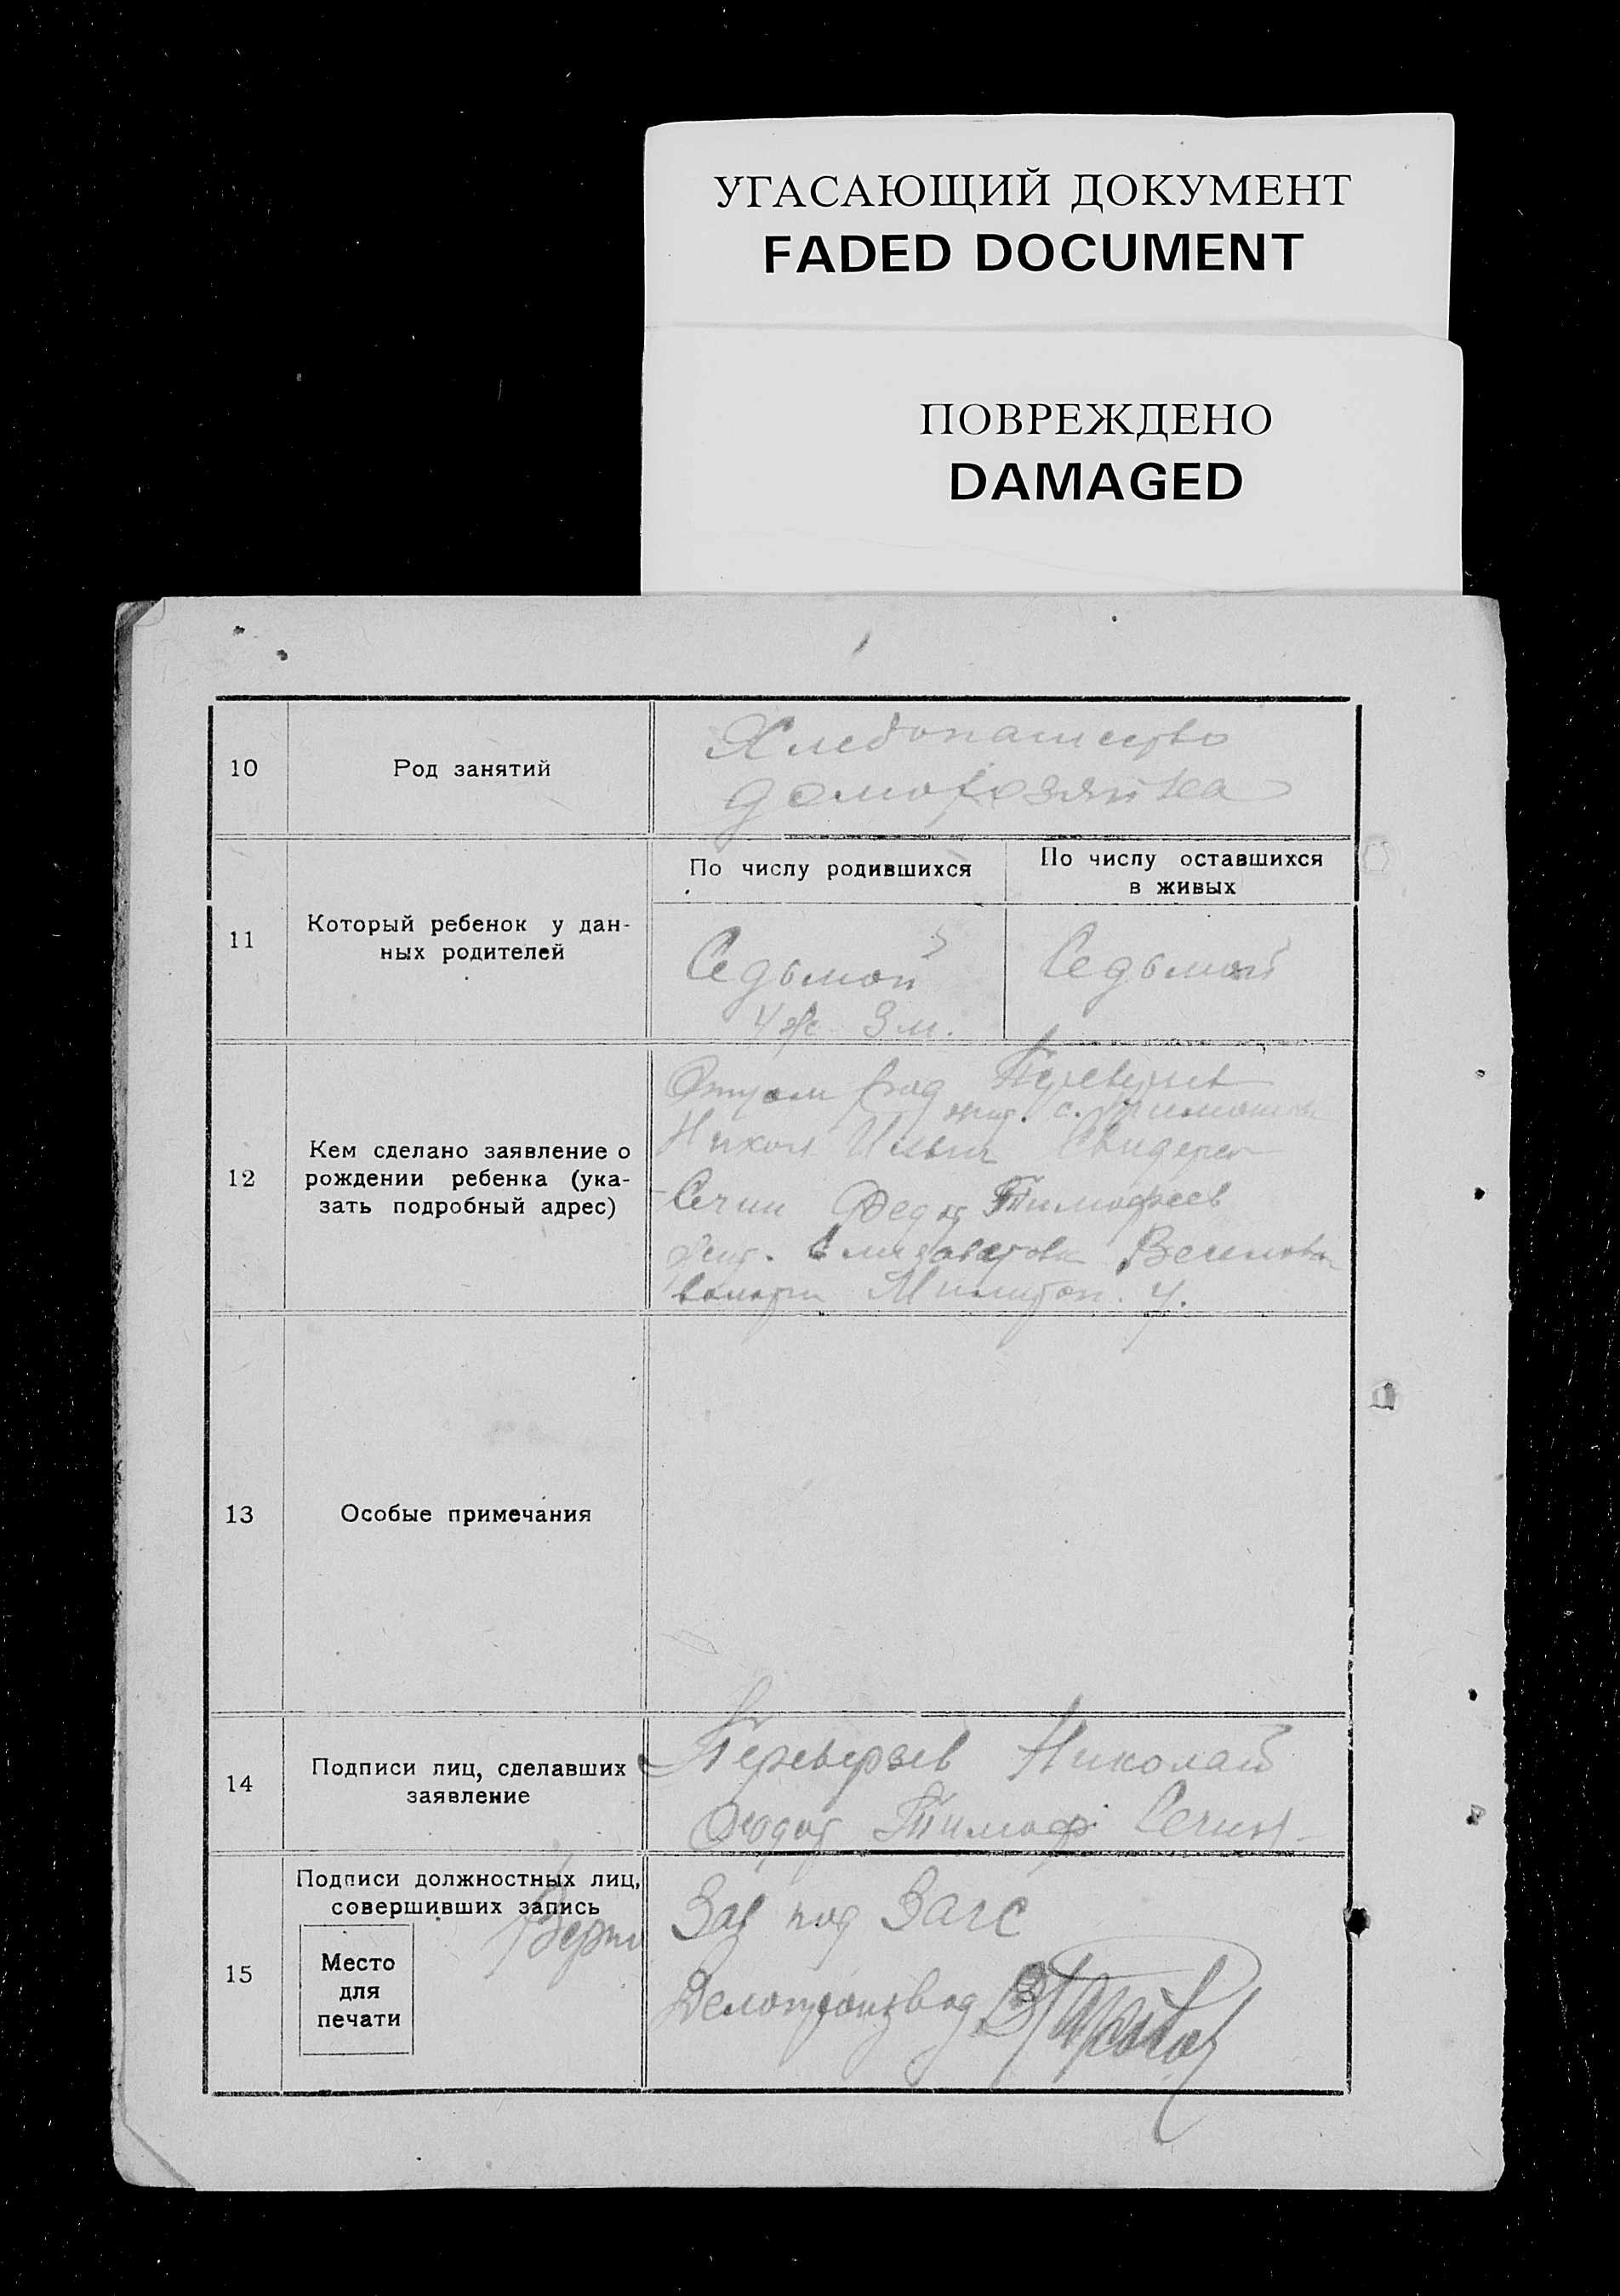 УГАСАЮЩИЙ ДОКУМЕНТ
FADED DOCUMENT
ПОВРЕЖДЕНО
DAMAGED
10
Род занятий
Хлебопашество
домохозяйка
11
Который ребенок у дан-
ных родителей
По числу родившихся
По числу оставшихся
в живых
Седьмой
4 ж 3 м.
Седьмой
12
Кем сделано заявление о
рождении ребенка (ука-
зать подробный адрес)
Отцом
Никол Ильич
Сечин Федот Тимофеев
13
Особые примечания
14
Подписи лиц, сделавших
заявление
Переверзев Николай
Федот Тимоф. Сечин
15
Подписи должностных лиц,
совершивших запись
Место
для
печати
Верно
Зав под Загс
Делопроизвод